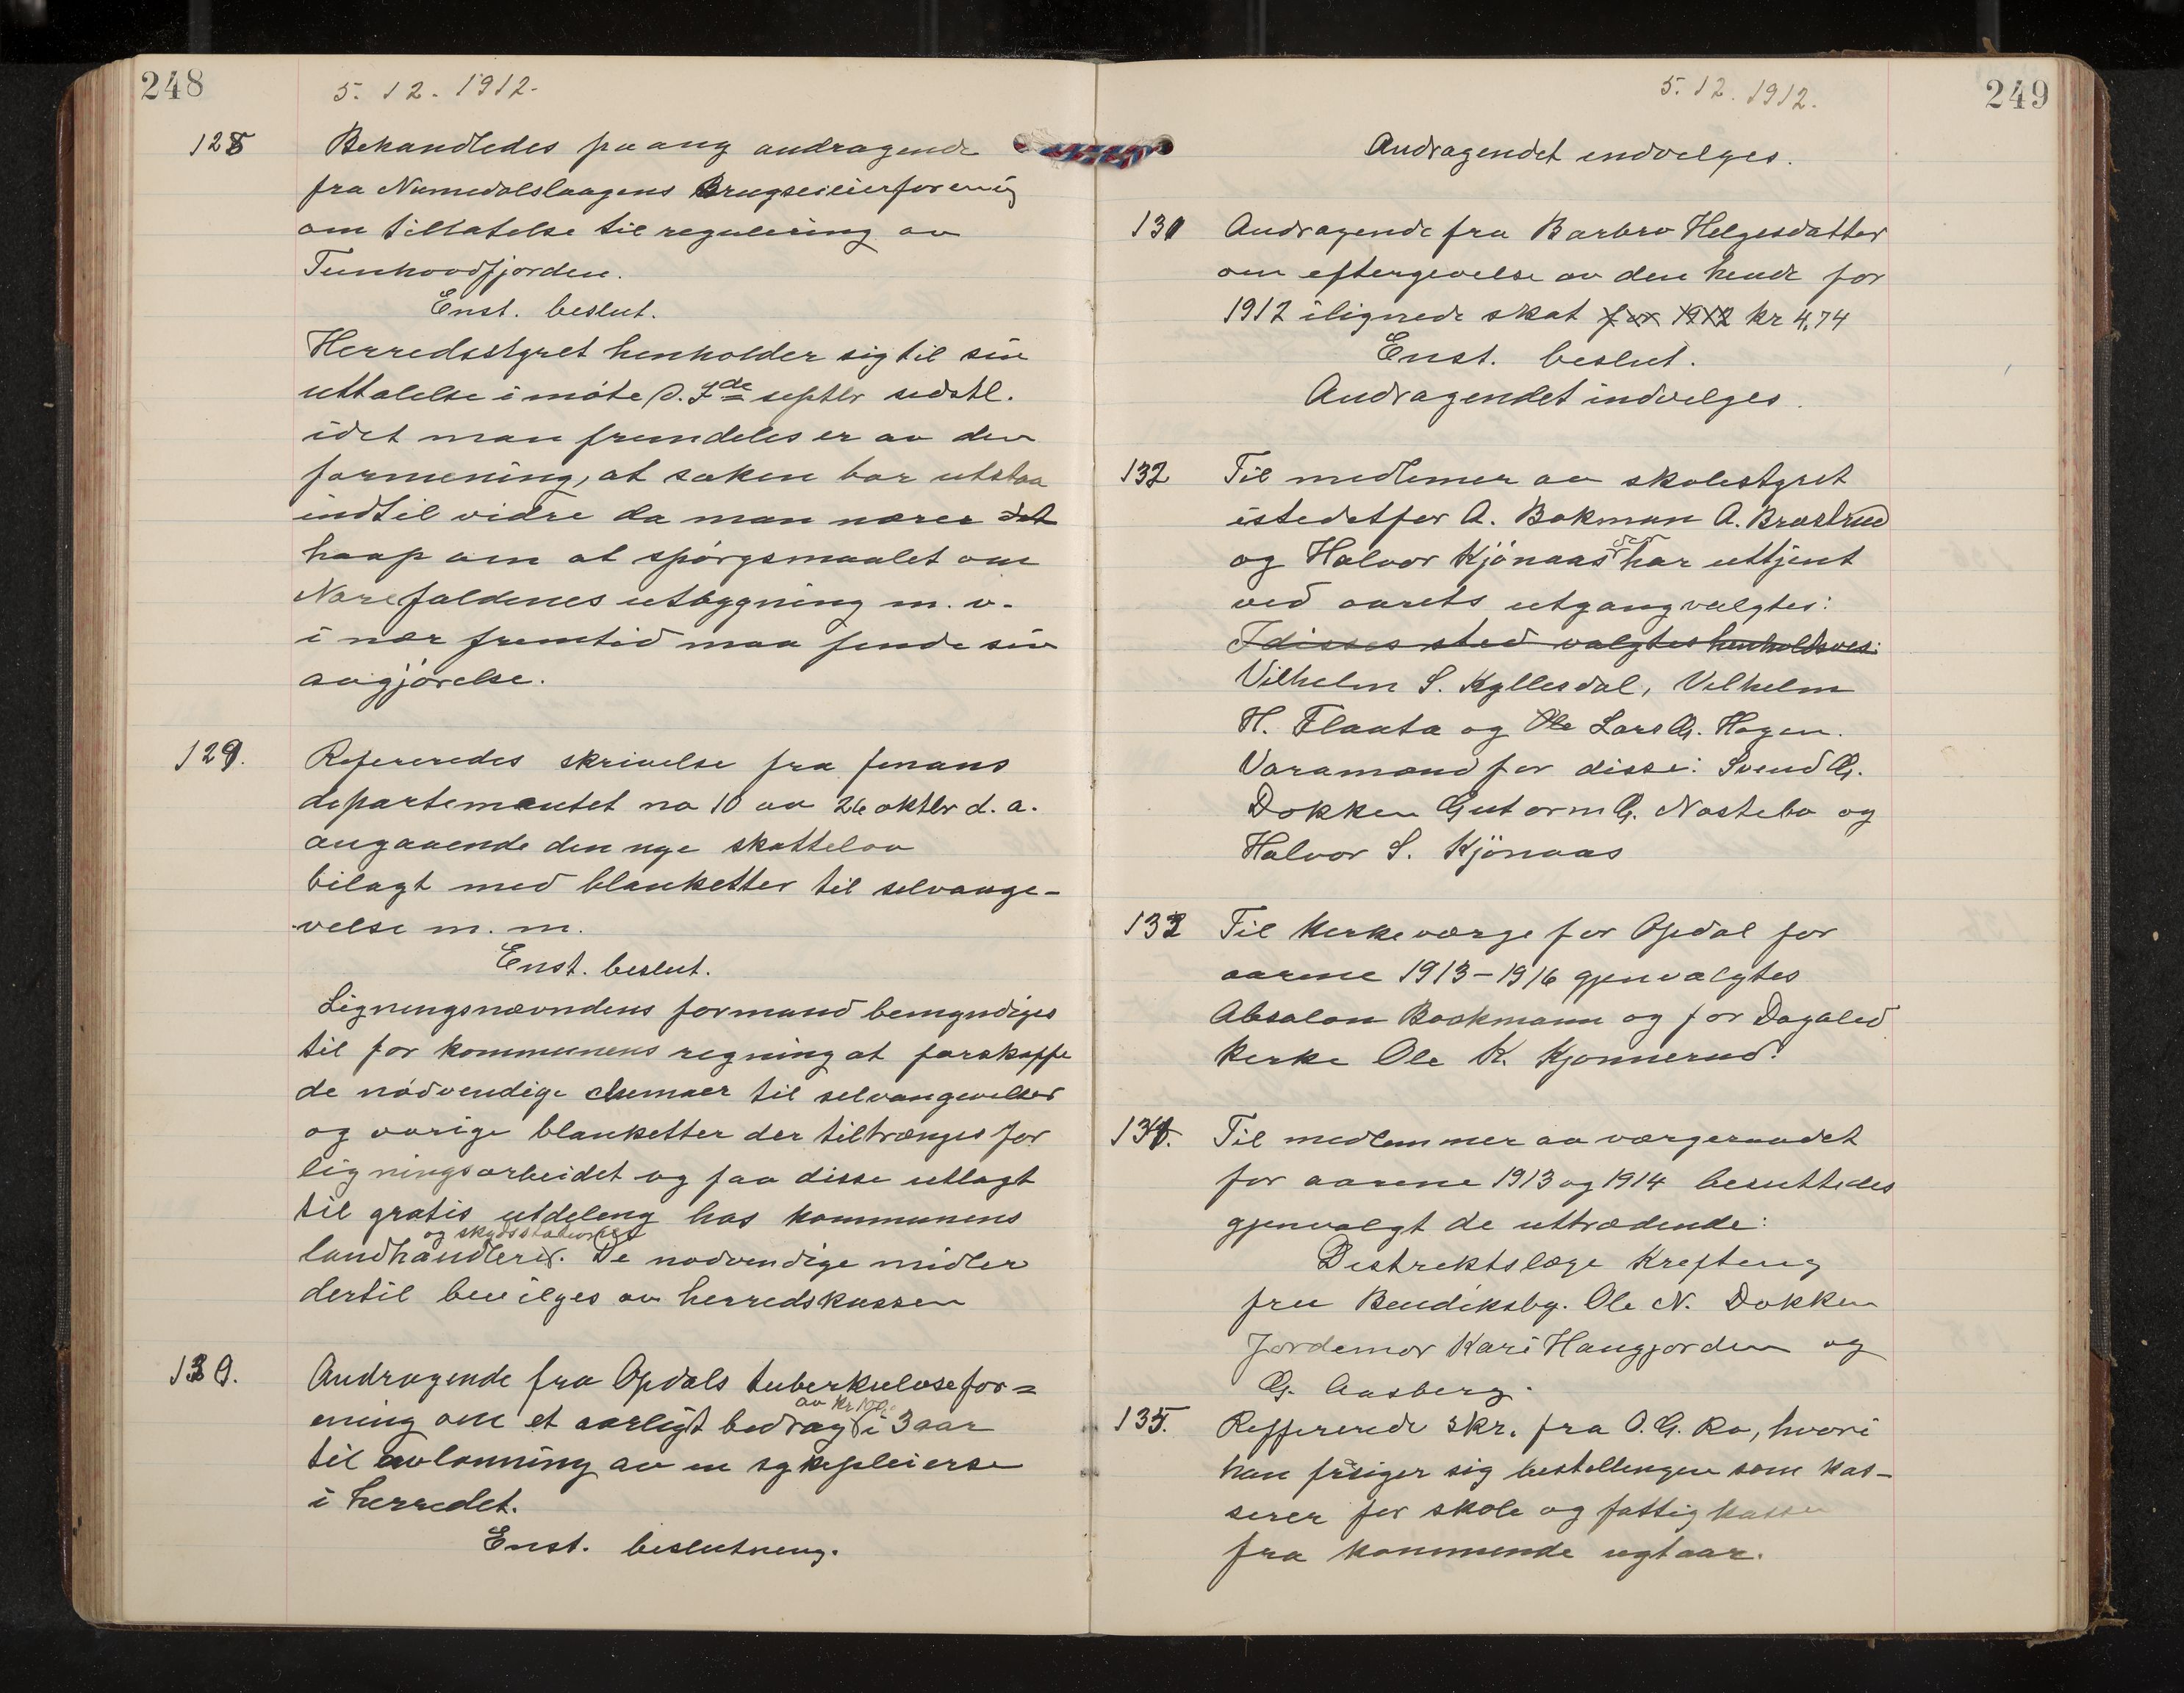 248
5. 12. 1912.
128 Behandledes paa ny andragende
fra Numedalslaagens Brugseierforening
om tillatelse til regulering av
Tunhovdfjorden.
Enst. beslut.
Herredsstyret henholder sig til sin
uttalelse i møte d. 7de septbr sidstl.
idet man fremdeles er av den
formening, at saken bør utstaa
indtil vidre da man nærer det
haap om at spørgsmaalet om
Norefaldenes utbygning m. v.
i nær fremtid maa finde sin
avgjørelse.
129. Refereredes skrivelse fra finans
departementet no 10 av 26 oktbr d. a.
angaaende den nye skattelov
bilagt med blanketter til selvange-
velse m. m.
Enst. beslut.
Ligningsnævndens formand bemyndiges
til for kommunens regning at forskaffe
de nødvendige chemaer til selvangivelser
og øvrige blanketter der tiltrænges for
ligningsarbeidet og faa disse utlagt
til gratis utdeling hos kommunens
og skydsstationer
landhandlere. De nødvendige midler
dertil bevilges av herredskassen
130. Andragende fra Opdals tuberkulosefor=
av kr 100
ening om et aarligt bedrag i 3 aar
til avlønning av en sykepleierse
i herredet.
Enst. beslutning.
249
5. 12. 1912.
Andragendet indvilges.
131 Andragende fra Barbro Helgesdatter
om eftergivelse av den hende for
1912 ilignede skat for 1912 kr 4,74
Enst. beslut.
Andragendet indvilges.
132 Til medlemer av skolestyret
istedetfor A. Bokman A. Brøstrud
der
og Halvor Kjønaas har uttjent
ved aarets utgang valgtes:
I disses sted valgtes henholdsvis:
Vilhelm S. Kyllesdal, Vilhelm
H. Flaata og Ole Lars G. Hagen.
Varamænd for disse: Svend G.
Dokken Gutorm G. Nøstebø og
Halvor S. Kjönaas
133 Til kirkeværge for Opdal for
aarene 1913-1916 gjenvalgtes
Absalon Bookmann og for Dagalid
kirke Ole K. Kjønnerud.
134. Til medlemmer av værgeraadet
for aarene 1913 og 1914 besluttedes
gjenvalgt de uttrædende:
Distriktslæge Krefting
fru Bendiksby. Ole N. Dokken
Jordemor Kari Haugjorden og
G. Aasberg.
135. Reffererede skr. fra O. G. Ro, hvori
han frasiger sig bestillingen som kas-
serer for skole og fattigkassen
fra kommende nyt aar.